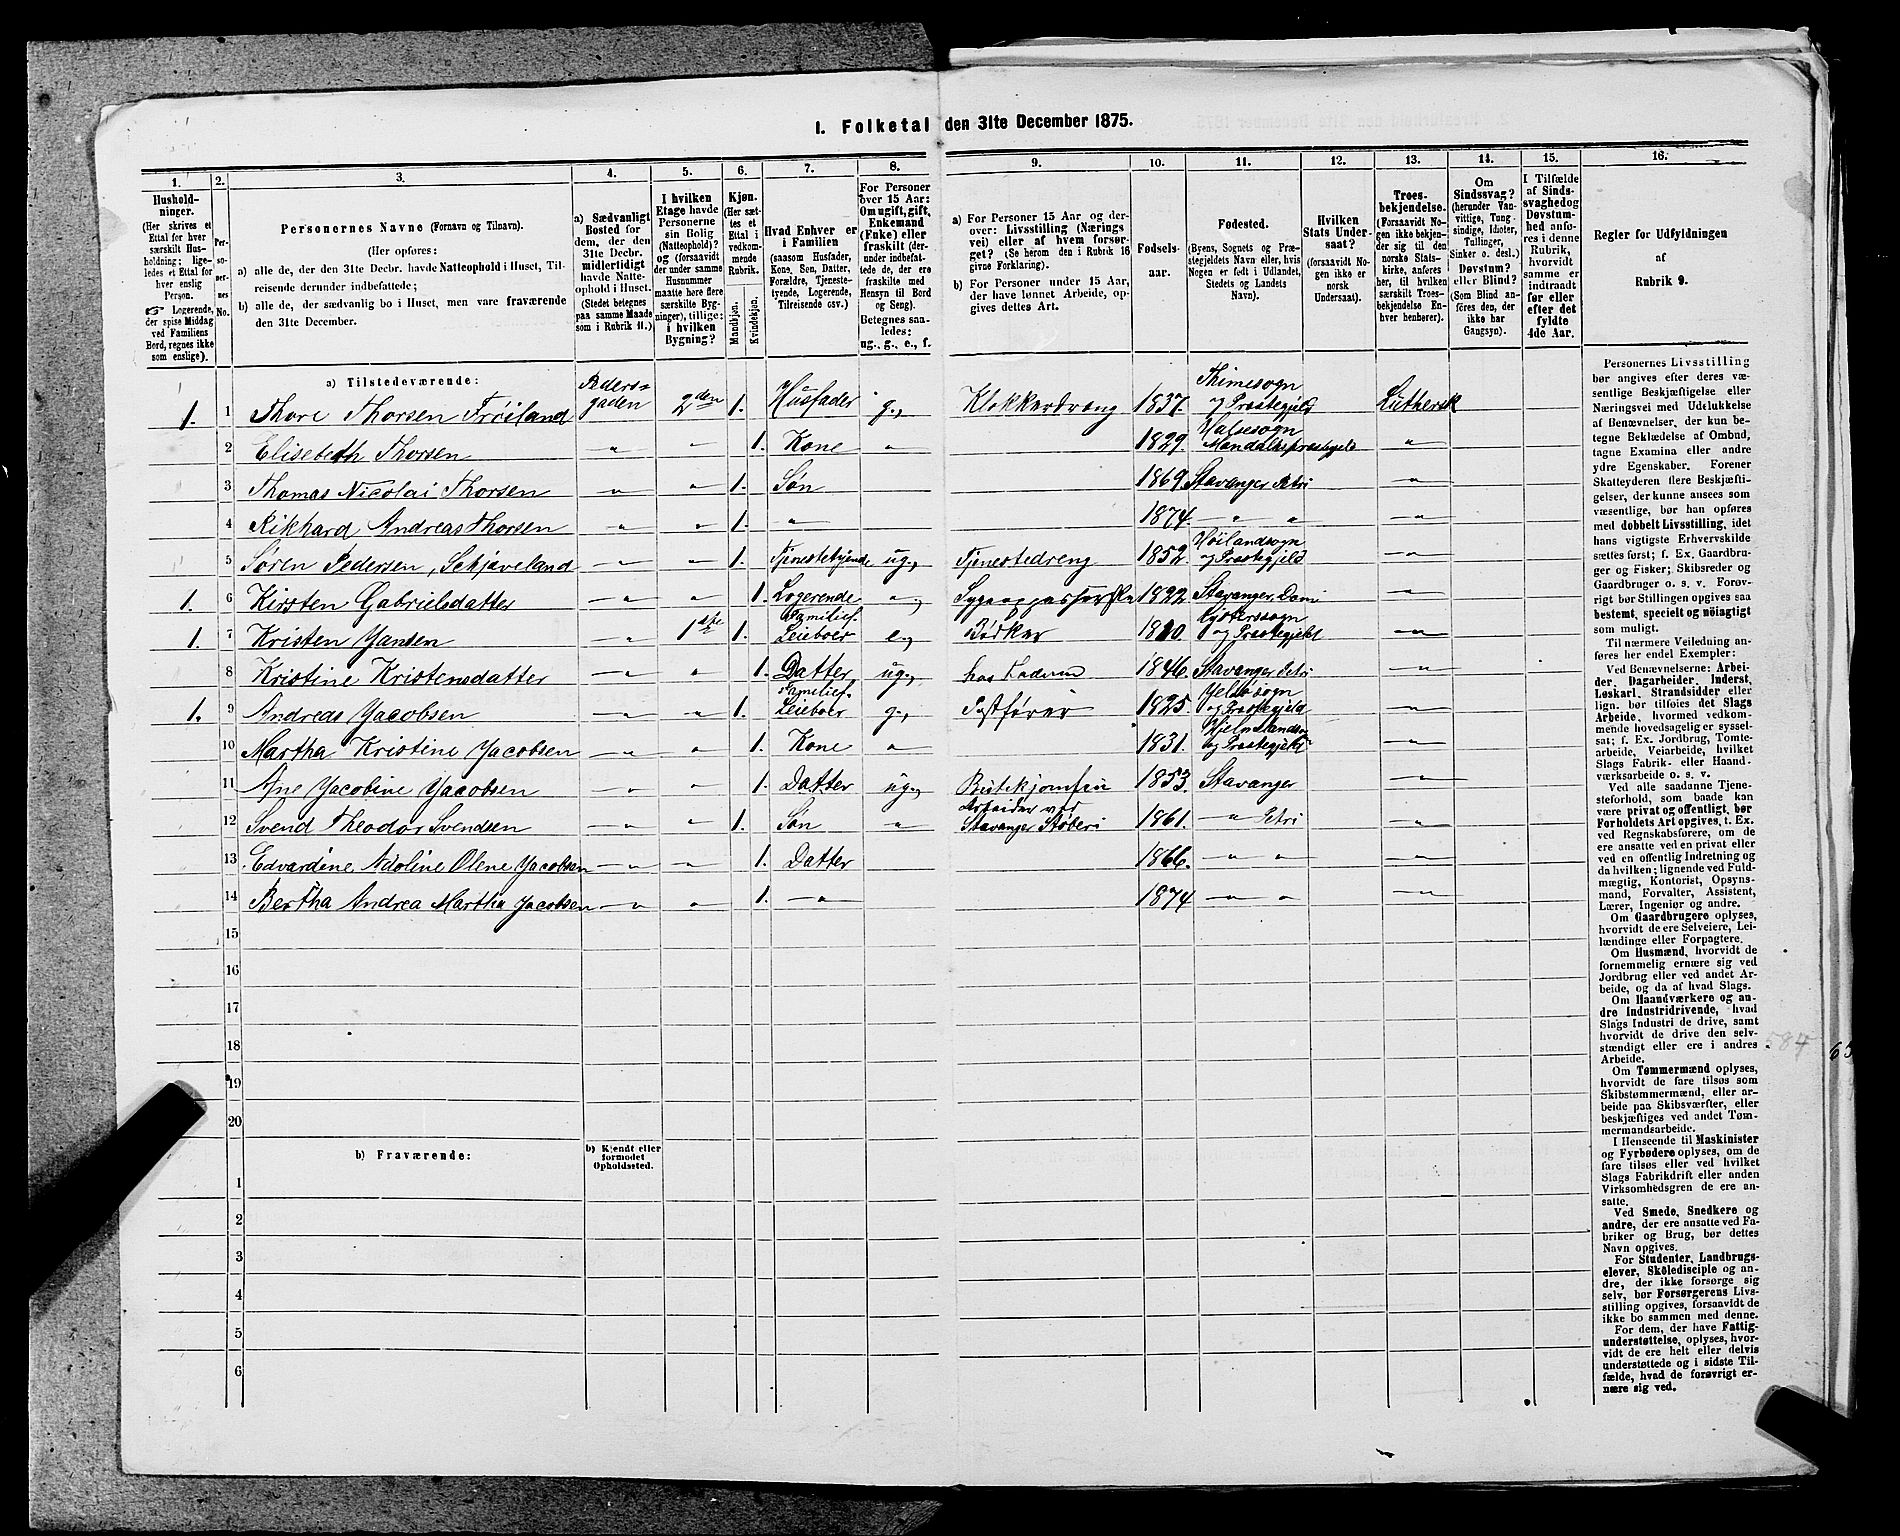 I. Folketal den 31te December 1875.
1. 2. 3. 4. 5. 6. 7. 8. 9. 10. 11. 12. 13. 14. 15. 16.
Hushold-
ninger.
(Her skrives et
Ettal for hver
særskilt Hus-
holdning; lige-
ledes et Ettal for
hver enslig
Person.
☞ Logerende,
der spise Middag
ved Familiens
Bord, regnes ikke
som enslige).
Per-
so-
ner-
nes
No.
Personernes Navne (Fornavn og Tilnavn).
(Her opføres:
a) alle de, der den 31te Decbr. havde Natteophold i Huset, Til-
reisende derunder indbefattede;
b) alle de, der sædvanlig bo i Huset, men vare fraværende
den 31te December.
a) Sædvanligt
Bosted for
dem, der den
31te Decbr.
midlertidigt
havde Natte-
ophold i Huset.
(Stedet betegnes
paa samme Maade
som i Rubrik 11.)
I hvilken
Etage havde
Personerne
sin Bolig
(Natteophold)?
og (forsaavidt
der under samme
Husnummer
maatte høre flere
særskilte Byg-
ninger), tillige:
i hvilken
Bygning?
Kjøn.
(Her sæt-
tes et
Ettal i
vedkom-
mende
Rubrik.
Mandkjøn.
Kvindekjøn.
Hvad Enhver er
i Familien
(saasom Husfader,
Kone, Søn, Datter,
Forældre, Tjeneste-
tyende, Logerende,
Tilreisende osv.)
For Personer
over 15 Aar:
Om ugift, gift,
Enkemand
(Enke) eller
fraskilt (der-
under indbefat-
tede de, der ere
fraskilte med
Hensyn til Bord
og Seng).
Betegnes saa-
ledes:
ug., g., e., f.
a) For Personer 15 Aar og der-
over: Livsstilling (Nærings
vei) eller af hvem forsør-
get? (Se herom den i Rubrik 16
givne Forklaring).
b) For Personer under 15 Aar,
der have lønnet Arbeide, op-
gives dettes Art.
Fødsels-
aar.
Fødested.
(Byens, Sognets og Præ-
stegjeldets Navn eller, hvis
Nogen er født i Udlandet,
Stedets og Landets
Navn).
Hvilken
Stats Under-
saat?
(forsaavidt No-
gen ikke er
norsk
Undersaat).
Troes-
bekjendelse.
(Forsaavidt No-
gen ikke bekjen-
der sig til den
norske Stats-
kirke, anføres
her, til hvilken
særskilt Troes-
bekjendelse En-
hver henhører).
Om
Sindssvag?
(herunder Van-
vittige, Tung-
sindige, Idioter,
Tullinger,
Sinker o. desl.)
Døvstum?
eller Blind?
(Som Blind an-
føres den, der
ikke har
Gangsyn).
I Tilfælde
af Sinds-
svaghed og
Døvstum-
hed anfø-
res i denne
Rubrik,
hvorvidt
samme er
indtraadt
før eller
efter det
fyldte
4de Aar.
Regler for Udfyldningen
af
Rubrik 9.
a) Tilstedeværende:
1. 1 Thore Thorsen Fröiland Peders-gaden 2den 1. Husfader g., Klokkerdreng 1837. Thimesogn og Præstegjeld Luthersk
2 Elisebeth Thorsen " " 1. Kone " 1829. Mandals præstegjeld "
3 Thomas Nicolai Thorsen " " 1. Søn 1869. Stavanger Petri "
4 Rikhard Andreas Thorsen " " 1. " 1874. " " "
5 Søren Pedersen, Schjæveland " " 1. Tjenestetyende ug., Tjenestedreng 1852. Höilandsogn og Præstegjeld "
1. 6 Kirsten Gabrielsdatter " " 1. Logerende " 1822. Stavanger Dom "
1. 7 Kristen Jansen " 1ste 1. Familief. Leieboer e., Bödker og Præstegjeld "
8 Kristine Kristensdatter " " 1. Datter ug., hos Faderen 1846. Stavanger Petri "
1. 9 Andreas Jacobsen " " 1. Familief. Leieboer g., Postfører 1825. og Præstegjeld "
10 Martha Kristine Jacobsen " " 1. Kone " 1831. og Præstegjeld "
11 Ane Jacobine Jacobsen " " 1. Datter ug., 1853. Stavanger "
12 Svend Theodor Svendsen " " 1. Søn " Arbeider ved Stavanger Støberi 1861. " Petri "
13 Edvardine Adoline Olene Jacobsen " " 1. Datter 1866. " " "
14 Bertha Andrea Martha Jacobsen " " 1. " 1874 " " "
15
16
17
18
19
20
b) Fraværende:
b) Kjendt eller
formodet
Opholdssted.
1
2
3
4
5
6
Personernes Livsstilling
bør angives efter deres væ-
sentlige Beskjæftigelse eller
Næringsvei med Udelukkelse
af Benævnelser, der kun be-
tegne Beklædelse af Ombud,
tagne Examina eller andre
ydre Egenskaber. Forener
Skatteyderen flere Beskjæfti-
gelser, der kunne ansees som
væsentlige, bør han opføres
med dobbelt Livsstilling, idet
hans vigtigste Erhvervskilde
sættes først; f. Ex. Gaardbru-
ger og Fisker; Skibsreder og
Gaardbruger o. s. v. Forøv-
rigt bør Stillingen opgives saa
bestemt, specielt og nøiagtig
som muligt.
Til nærmere Veiledning an-
føres her endel Exempler:
Ved Benævnelserne: Arbei-
der, Dagarbeider, Inderst,
Løskarl, Strandsidder eller
lign. bør tilføies det Slags
Arbeide, hvormed vedkom-
mende hovedsagelig er syssel-
sat; f. Ex. Jordbrug, Tomte-
arbeide, Veiarbeide, hvilket
Slags Fabrik- eller Haand-
værksarbeide o. s. v.
Ved alle saadanne Tjene-
steforhold, som baade kan
være privat og offentligt, bør
Forholdets Art opgives, t. Ex.
ved Regnskabsførere, om de
ere ansatte ved en privat eller
ved en offentlig Indretning og
da hvilken; lignende ved Fuld-
mægtig, Kontorist, Opsyns-
mand, Forvalter, Assistent,
Lærer, Ingeniør og andre.
Om Gaardbrugere oplyses,
hvorvidt de ere Selveiere, Lei-
lændinge eller Forpagtere.
Om Husmænd, hvorvidt de
fornemmelig ernære sig ved
Jordbrug eller ved andet Ar-
beide, og da af hvad Slags.
Om Haandværkere og an-
dre Industridrivende, hvad
Slags Industri de drive, samt
hvorvidt de drive den selv-
stændigt eller ere i andres
Arbeide.
Om Tømmermænd oplyses,
hvorvidt de fare tilsøs som
Skibstømmermænd, eller ar-
beide paa Skibsværfter, eller
beskjæftiges ved andet Tøm-
mermandsarbeide.
I Henseende til Maskinister
og Fyrbødere oplyses, om de
fare tilsøs eller ved hvilket
Slags Fabrikdrift eller anden
Virksomhedsgren de ere an-
satte.
Ved Smede, Snedkere og
andre, der ere ansatte ved Fa-
briker og Brug, bør dettes
Navn opgives.
For Studenter, Landbrugs-
elever, Skoledisciple og an-
dre, der ikke forsørge sig
selv, bør Forsørgerens Livs-
stilling opgives, forsaavidt de
ikke bo sammen med denne.
For dem, der have Fattig-
understøttelse, oplyses, hvor-
vidt de ere helt eller delvis
understøttede og i sidste Til-
fælde, hvad de forøvrigt er-
nære sig ved.
584